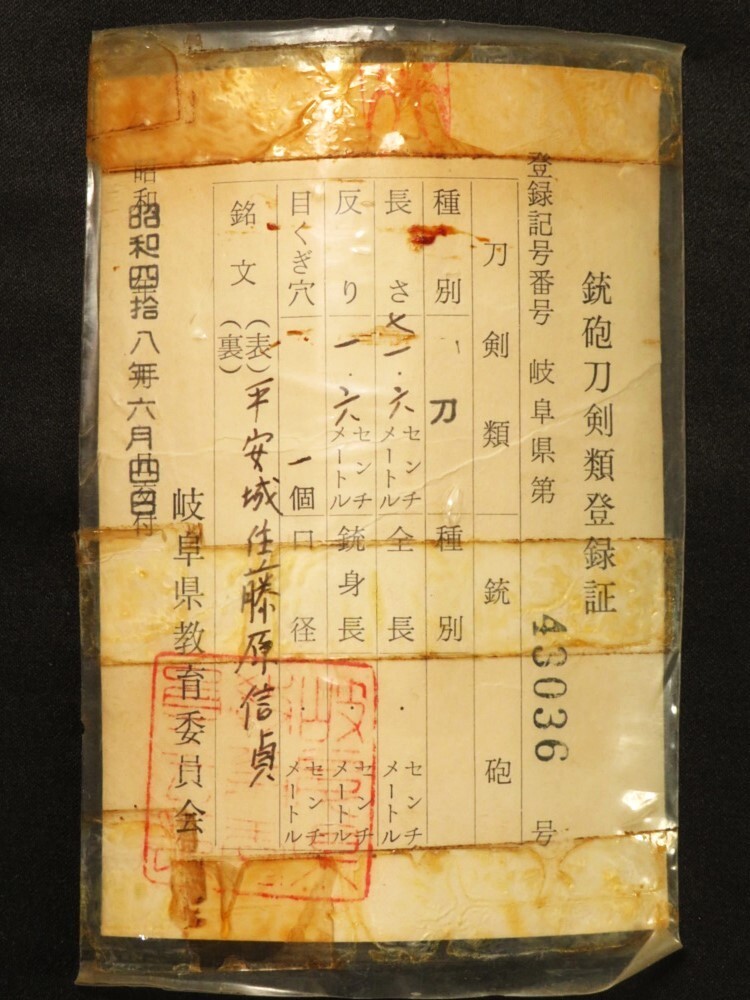 銃砲刀剣類登録証
登録記号番号 岐阜県第 43036 号
刀剣類 銃砲
種別 刀 種別
長さ 七一・六 センチメートル 全長 ・ センチメートル
反り 一・六 センチメートル 銃身長 ・ センチメートル
目くぎ穴 一個 口径 ・ センチメートル
銘文 (表) 平安城住藤原信貞
(裏)
昭和四拾八年六月四日
岐阜県教育委員会